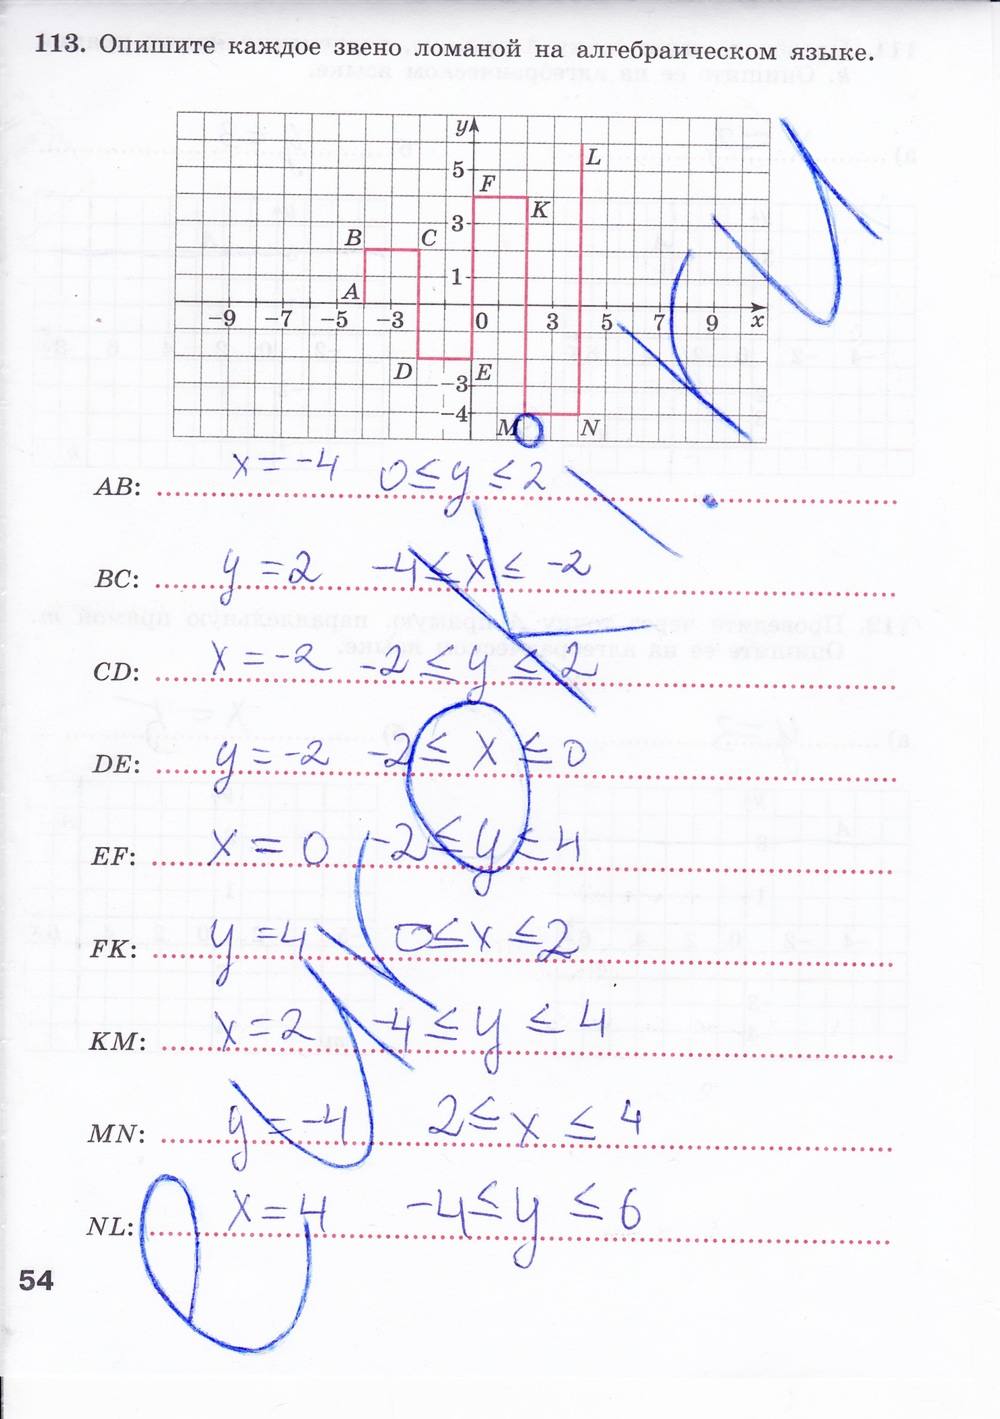 113. Опишите каждое звено ломаной на алгебраическом языке.
y
L
5
F
K
3
B C
1
A
-9 -7 -5 -3 0 3 5 7 9 x
D E
-3
-4
M N
AB: x = -4 0 ≤ y ≤ 2
BC: y = 2 -4 ≤ x ≤ -2
CD: x = -2 -2 ≤ y ≤ 2
DE: y = -2 -2 ≤ x ≤ 0
EF: x = 0 -2 ≤ y ≤ 4
FK: y = 4 0 ≤ x ≤ 2
KM: x = 2 -4 ≤ y ≤ 4
MN: y = -4 2 ≤ x ≤ 4
NL: x = 4 -4 ≤ y ≤ 6
54